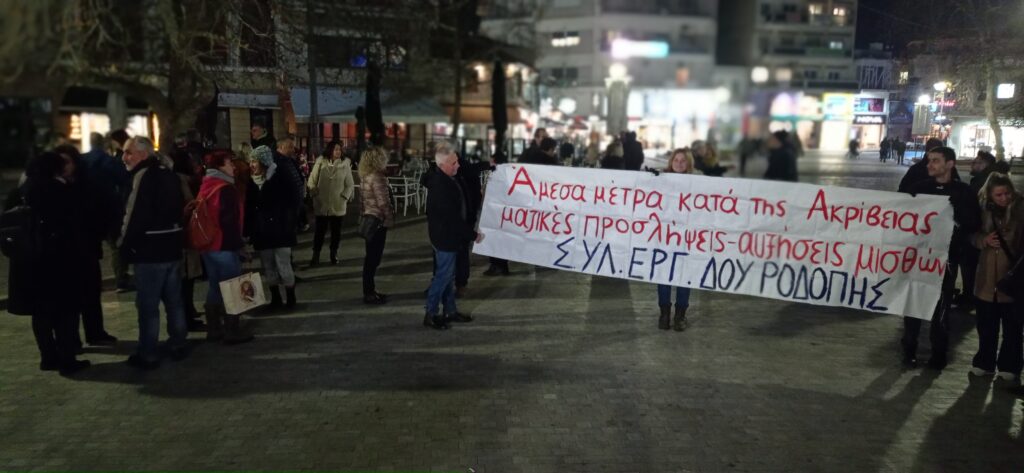 Άμεσα μέτρα κατά της Ακρίβειας
μαζικές προσλήψεις-αυξήσεις μισθών
ΣΥΛ. ΕΡΓ. ΔΟΥ ΡΟΔΟΠΗΣ